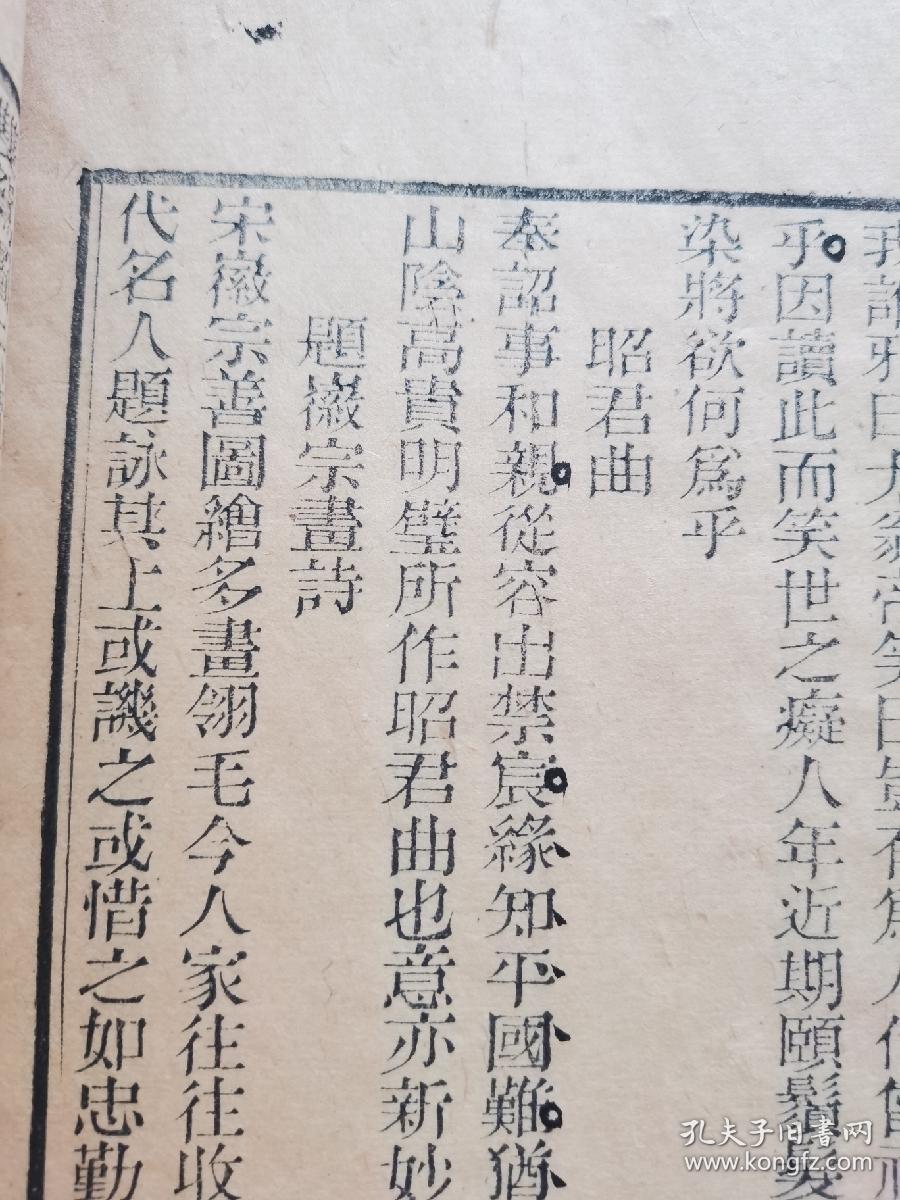 乎因讀此而笑世之癡人年近期頤鬚髮
染將欲何爲乎
昭君曲
奉詔事和親從容出禁宸緣知平國難猶
山陰高貴明璧所作昭君曲也意亦新妙
題徽宗畫詩
宋徽宗善圖繪多畫翎毛今人家往往收
代名人題詠其上或譏之或惜之如忠勤
孔夫子旧书网
www.kongfz.com